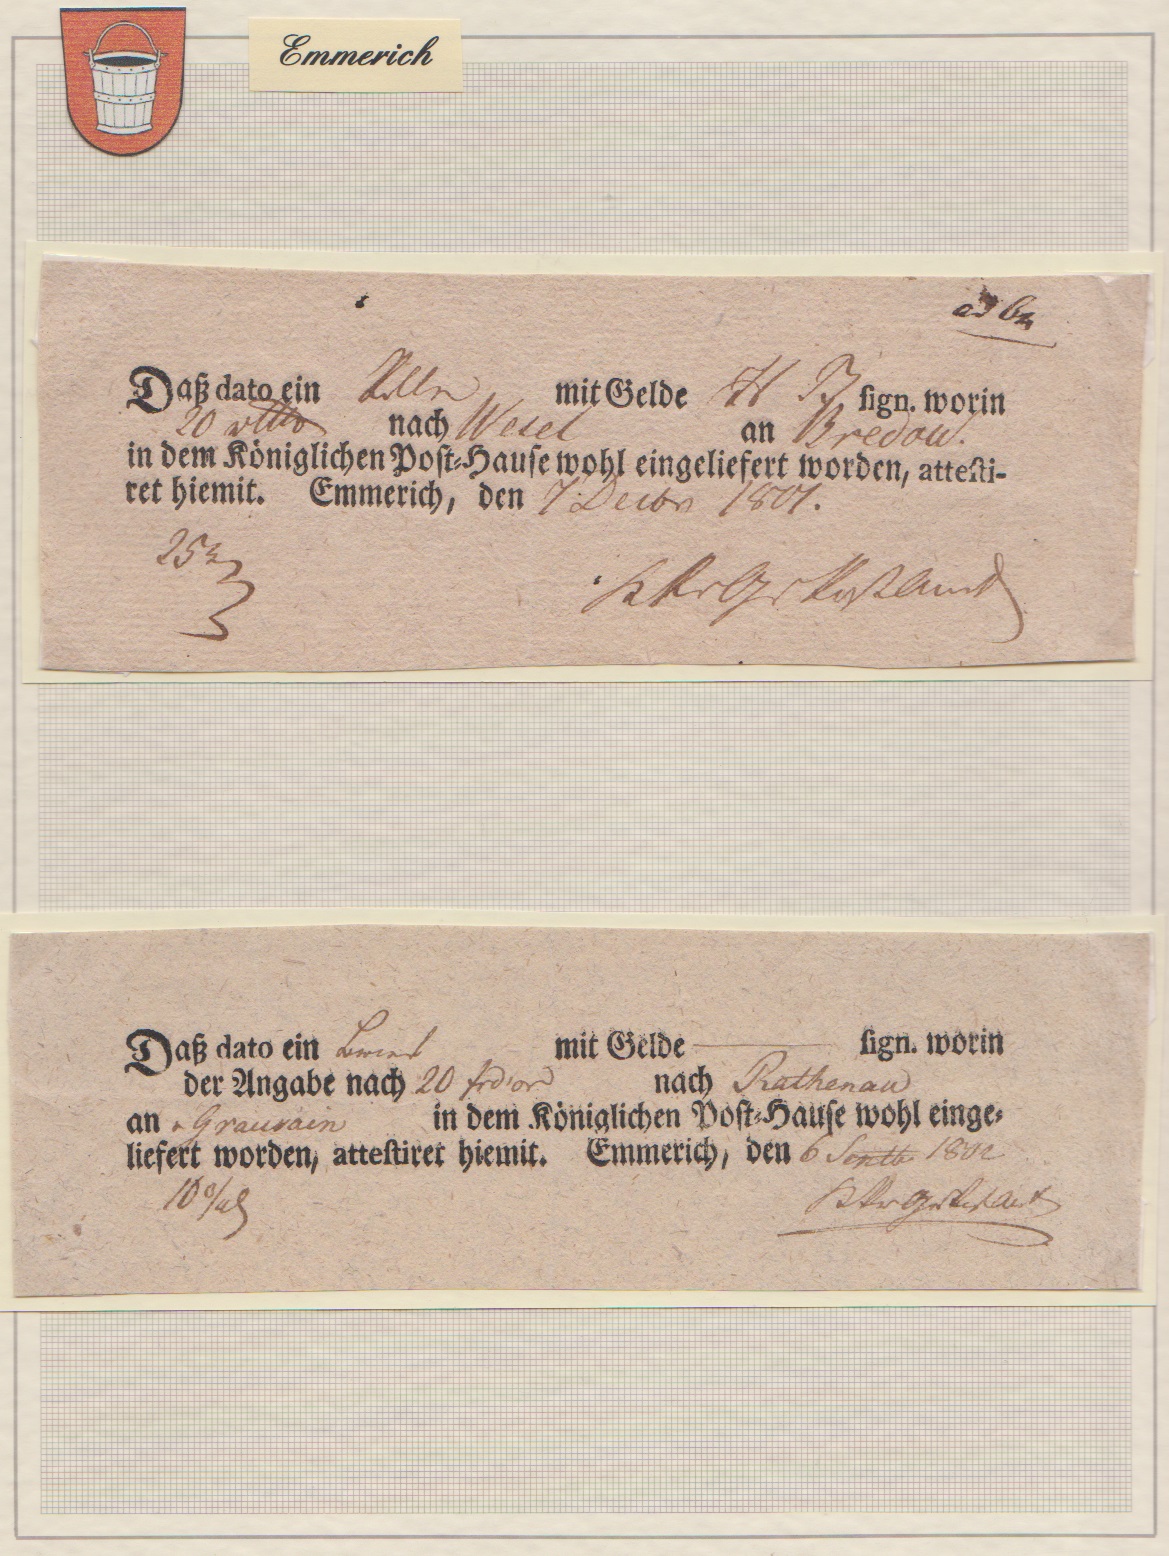 Emmerich
Daß dato ein mit Gelde H sign. worin
20 nach Wesel an Bredow.
in dem Königlichen Post-Hause wohl eingeliefert worden, attesti-
ret hiemit. Emmerich, den 7 Decbr 1801.
Daß dato ein mit Gelde sign. worin
der Angabe nach 20 frd'or nach Rathenau
an Grauvain in dem Königlichen Post-Hause wohl einge-
liefert worden, attestiret hiemit. Emmerich, den 6 1802